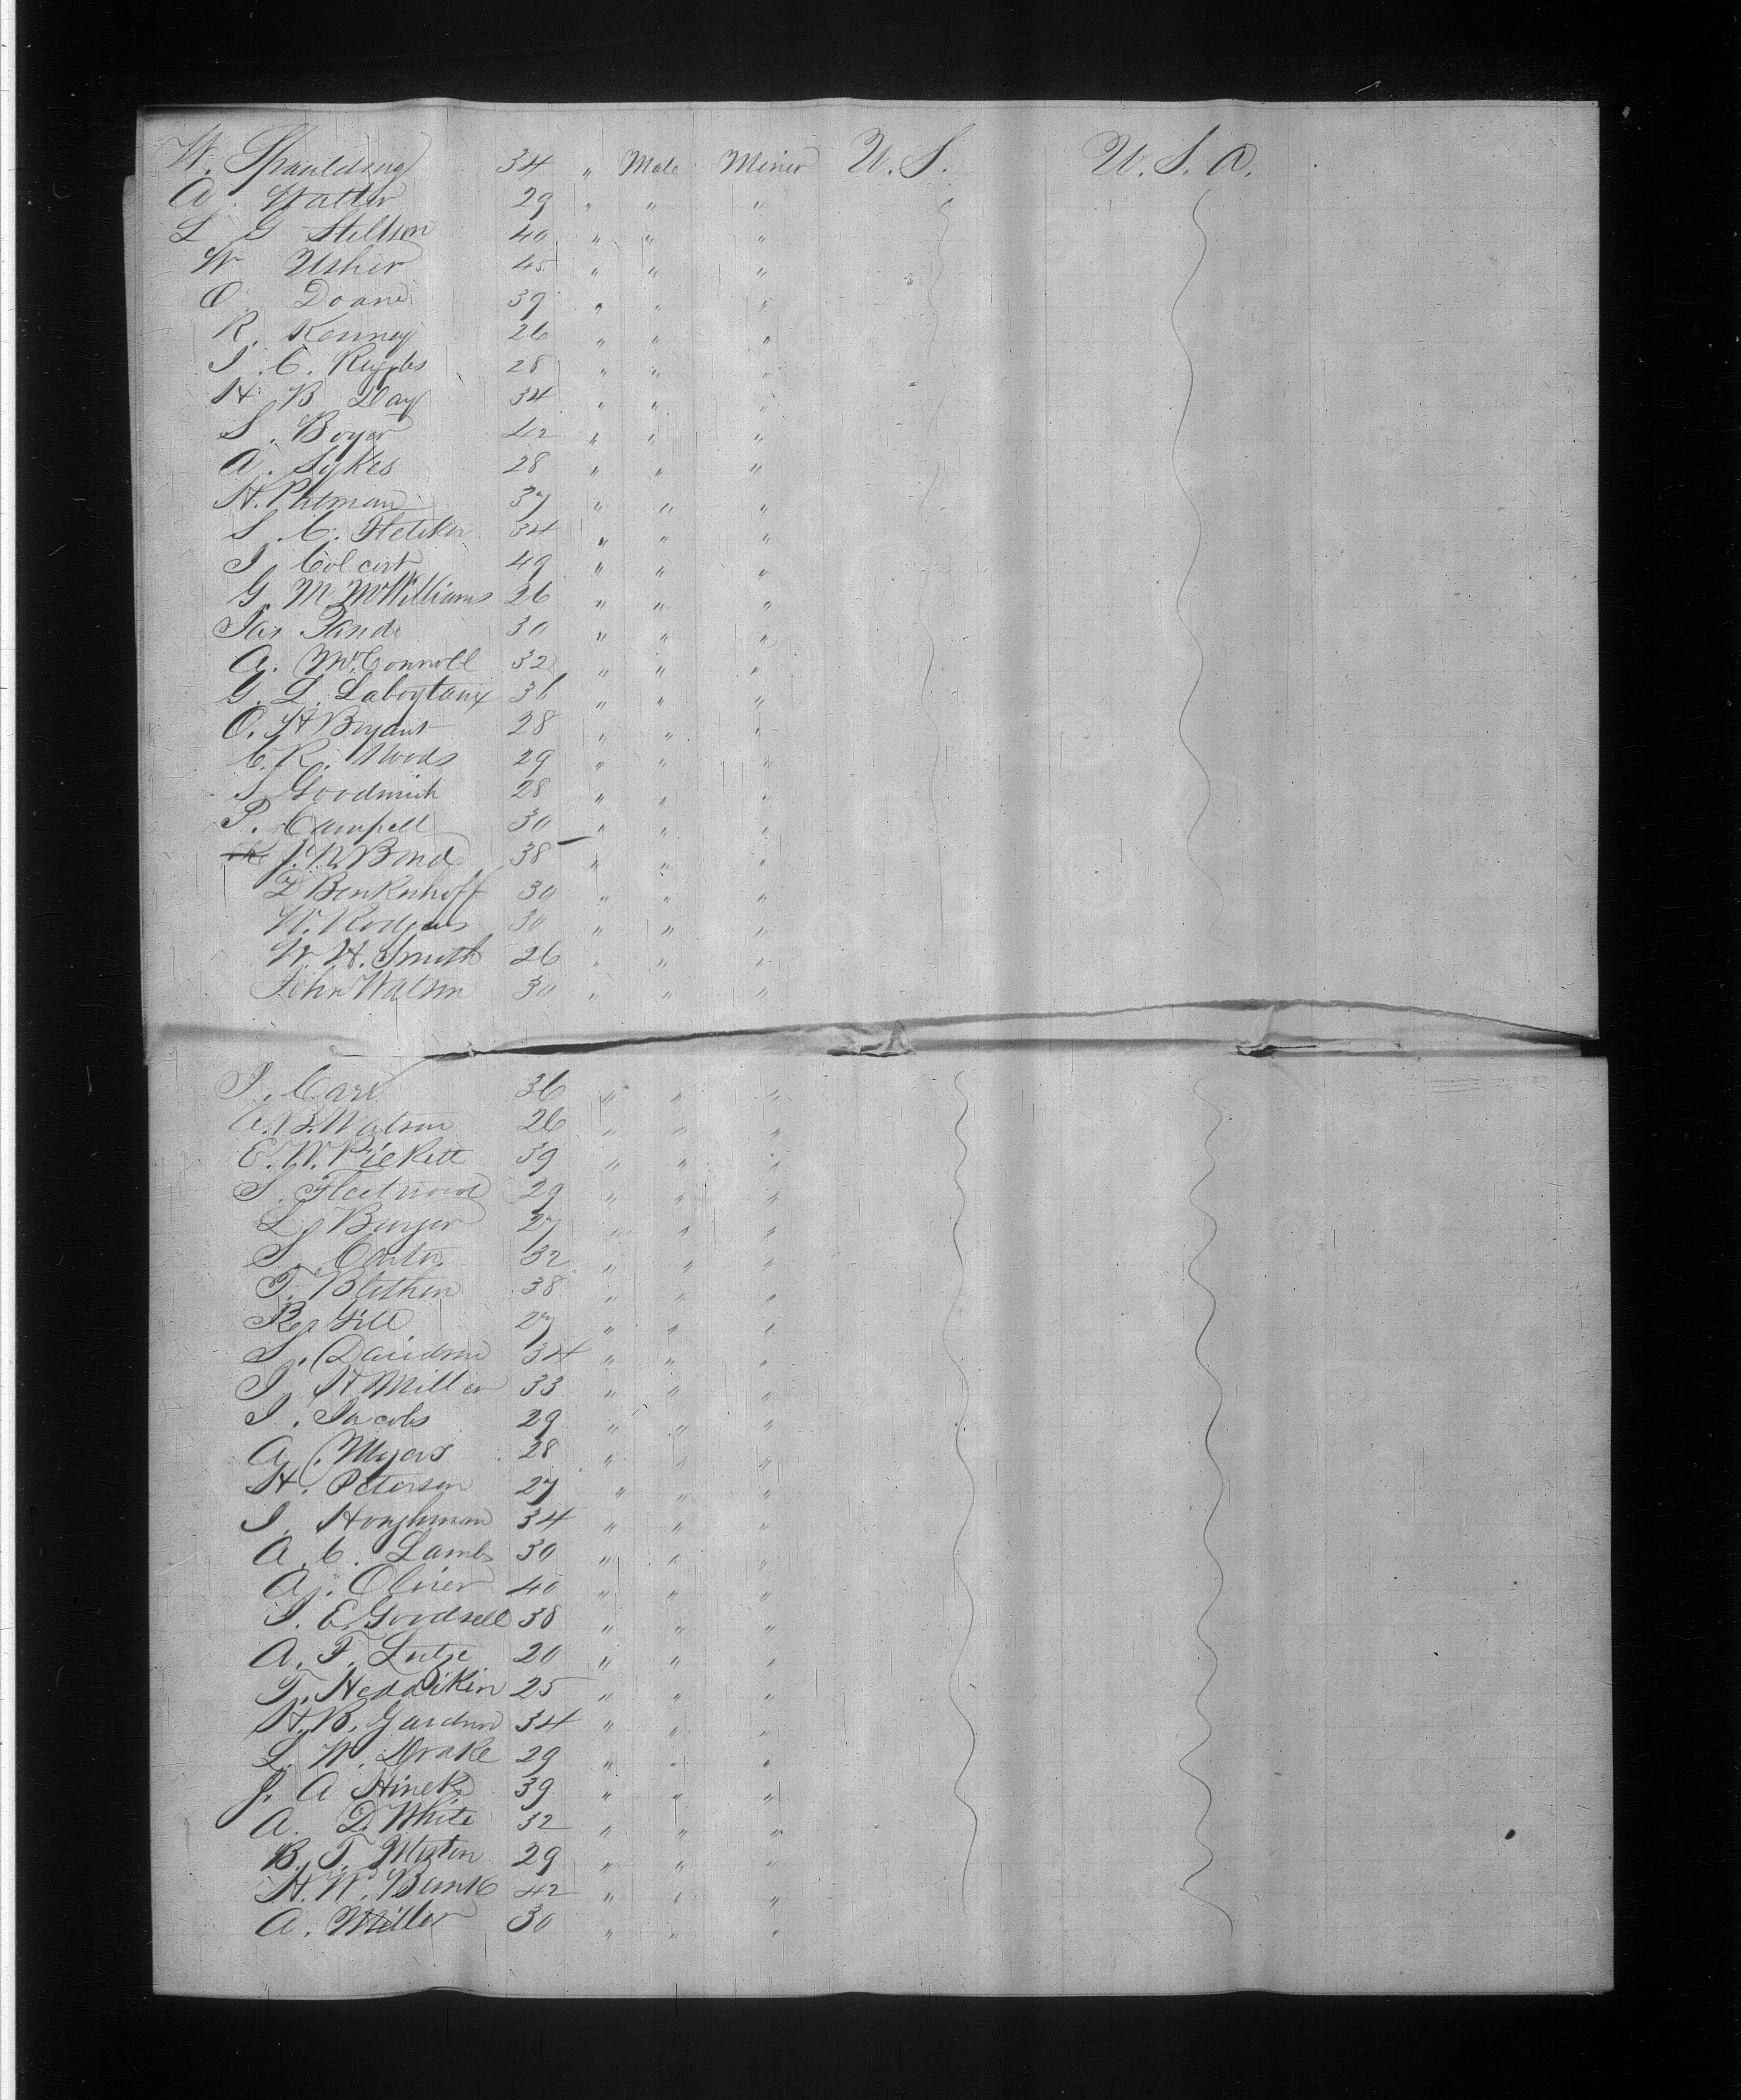 W. Spaulding 34 " Male Miner U.S. U.S.A.
A. Walter 29 " " "
L G Stillson 40 " " "
W Usher 45 " " "
O. Doane 39 " " "
R. Kenney 26 " " "
J. C. Ruggles 28 " " "
H. B Day 34 " " "
S. Boyer 42 " " "
A. Sykes 28 " " "
H. Putman 37 " " "
S. C. 34 " " "
J Colcort 49 " " "
G. M McWilliams 26 " " "
Jas 30 " " "
A. McConnell 32 " " "
G. L. Laboytaux 36 " " "
O. H Bryant 28 " " "
C. R. Woods 29 " " "
S Goodrich 28 " " "
P. Campell 30 " " "
J. N. Bond 38 " " "
D Benkenhoff 30 " " "
W. Rodgers 30 " " "
W. H. Smith 26 " " "
John Watson 30 " " "
J. Carr 36 " " "
A. B. Watson 26 " " "
E. W. Pickett 39 " " "
S. Fleetwood 29 " " "
L. Burger 27 " " "
S. Carter 32 " " "
T. Blethen 38 " " "
Gill 27 " " "
S. Davidson 34 " " "
J H Miller 33 " " "
J. Jacobs 29 " " "
A. Myers 28 " " "
H. Peterson 27 " " "
J. Houghman 34 " " "
A. C. Lamb 30 " " "
A. Oliver 40 " " "
J. E. Goodsell 38 " " "
A. F. Lutze 20 " " "
T. Heddikin 25 " " "
H. B. Gardner 34 " " "
L. W. Drake 29 " " "
J. A Hinek 39 " " "
A. D. White 32 " " "
B. T. 29 " " "
H. W. 42 " " "
A. Miller 30 " " "